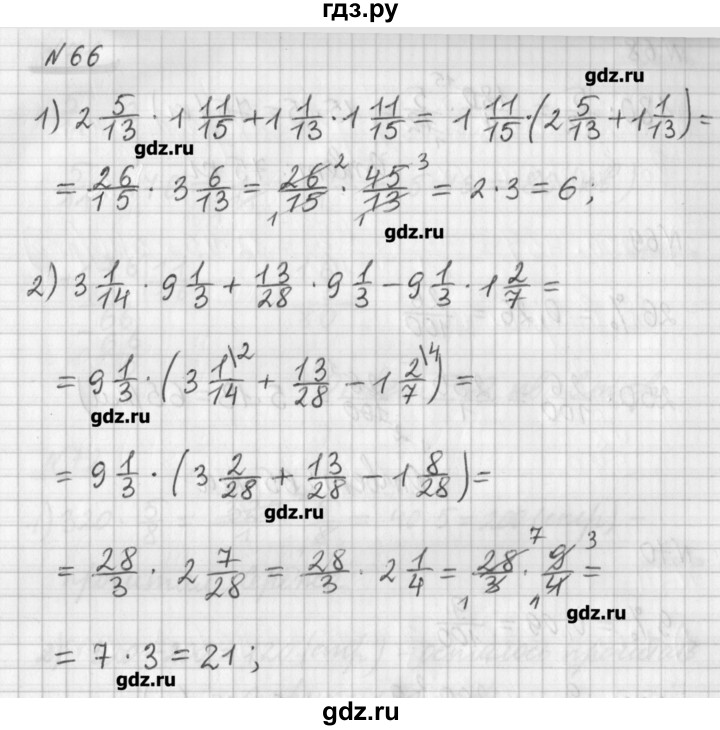 гдз.ру
N 66
gdz.ru
1) 2 5/13 · 1 11/15 + 1 1/13 · 1 11/15 = 1 11/15 · (2 5/13 + 1 1/13) =
gdz.ru
= 26/15 · 3 6/13 = 26/15 2 1 · 45/13 3 1 = 2 · 3 = 6;
gdz.ru
2) 3 1/14 · 9 1/3 + 13/28 · 9 1/3 - 9 1/3 · 1 2/7 =
= 9 1/3 · (3 1\2/14 + 13/28 - 1 2\4/7) =
gdz.ru
= 9 1/3 · (3 2/28 + 13/28 - 1 8/28) =
gdz.ru
= 28/3 · 2 7/28 = 28/3 · 2 1/4 = 28/3 7 1 · 9/4 3 1 =
gdz.ru
= 7 · 3 = 21;
gdz.ru
gdz.ru